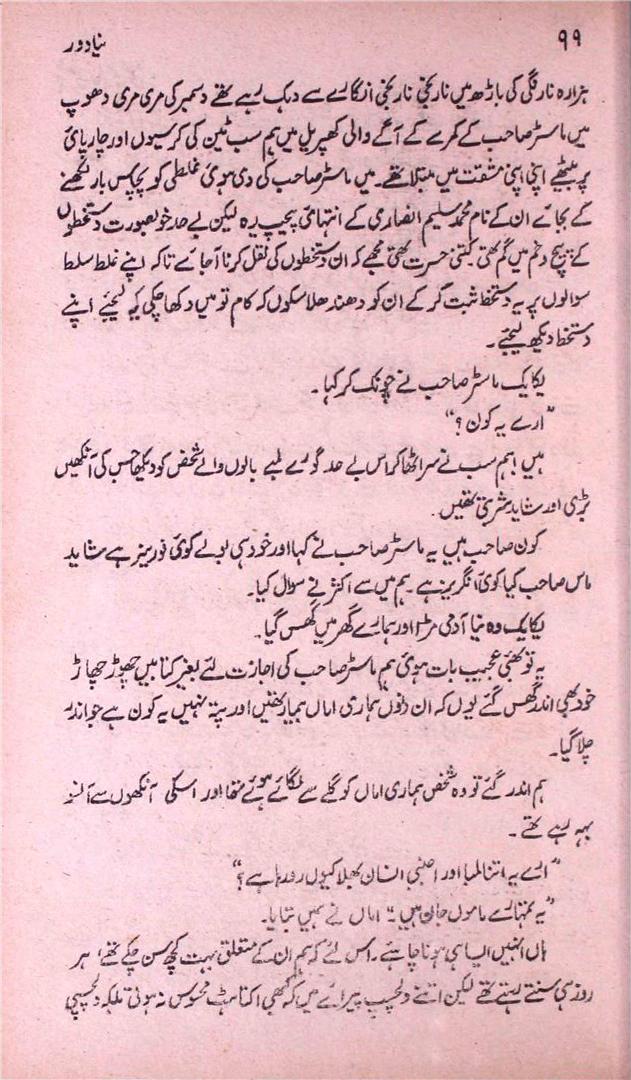 ۹۹
نیا دور
ہزارہ نارنگی کی باڑھ میں نارنجی نارنجی انگارے سے دہک رہے تھے دسمبر کی مری مری دھوپ
میں ماسٹر صاحب کے کمرے کے آگے والی کھپریل میں ہم سب ٹین کی کرسیوں اور چارپائی
پر بیٹھے اپنی اپنی مشقت میں مبتلا تھے۔ میں ماسٹر صاحب کی دی ہوئی غلطی کو پچاس بار لکھنے
کے بجائے ان کے نام محمد سلیم انصاری کے انتہائی پیچیدہ لیکن بے حد خوبصورت دستخطوں
کے پیچ و خم میں گم تھی کتنی حسرت تھی مجھے کہ ان دستخطوں کی نقل کرنا آجائے تاکہ اپنے غلط سلط
سوالوں پر یہ دستخط ثبت کر کے ان کو دھندھلا سکوں کہ کام تو میں دکھا چکی یہ لیجئے اپنے
دستخط دیکھ لیجئے۔
یکایک ماسٹر صاحب نے چونک کر کہا۔
"ارے یہ کون؟"
ہیں! ہم سب نے سر اٹھا کر اس بے حد گورے لمبے بالوں والے شخص کو دیکھا جس کی آنکھیں
بڑی اور شاید شربتی تھیں۔
کون صاحب ہیں یہ ماسٹر صاحب نے کہا اور خود ہی بولے کوئی فورینر ہے شاید
ماس صاحب کیا کوئی انگریز ہے۔ ہم میں سے اکثر نے سوال کیا۔
یکایک وہ نیا آدمی مڑا اور ہمارے گھر میں گھس گیا۔
یہ تو بھئی عجیب بات ہوئی ہم ماسٹر صاحب کی اجازت لئے بغیر کتابیں چھوڑ چھاڑ
خود بھی اندر گھس گئے یوں کہ ان دنوں ہماری اماں بیمار تھیں اور پتہ نہیں یہ کون ہے جو اندر
چلا گیا۔
ہم اندر گئے تو وہ شخص ہماری اماں کو گلے سے لگائے ہوئے تھا اور اسکی آنکھوں سے آنسو
بہہ رہے تھے۔
"اے یہ اتنا لمبا اور اجنبی انسان بھلا کیوں رو رہا ہے؟"
"یہ تمہارے ماموں جان ہیں" اماں نے ہمیں بتایا۔
ہاں انہیں ایسا ہی ہونا چاہئے۔ اس لئے کہ ہم ان کے متعلق بہت کچھ سن چکے تھے، ہر
روز ہی سنتے رہتے تھے لیکن اتنے دلچسپ پیرائے میں کہ کبھی اکتاہٹ محسوس نہ ہوتی بلکہ دلچسپی